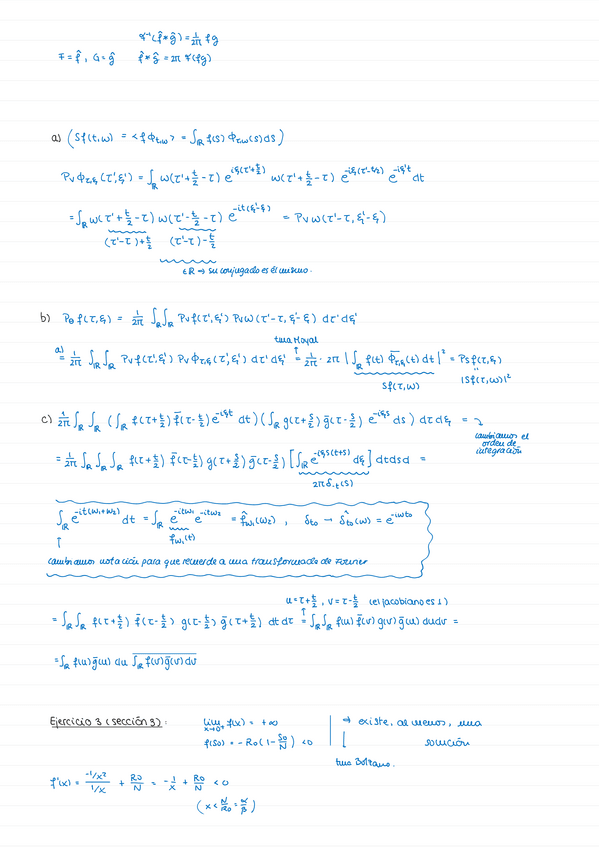 𝓕⁻¹(f̂ * ĝ) = 1/2π fg
F = f̂ , G = ĝ f̂ * ĝ = 2π 𝓕(fg)
a) (Sf(t,ω) = <f, Φt,ω> = ∫ℝ f(s) Φt,ω(s) ds)
PvΦτ,ξ(τ',ξ') = ∫ℝ w(τ'+t/2-τ) e^{iξ(τ'+t/2)} w(τ'+t/2-τ) e^{-iξ(τ'-t/2)} e^{-iξ't} dt
= ∫ℝ w(τ'+t/2-τ) w(τ'-t/2-τ) e^{-it(ξ'-ξ)} = Pv w(τ'-τ, ξ'-ξ)
(τ'-τ)+t/2 (τ'-τ)-t/2
∈ℝ → su conjugado es él mismo.
b) Pθ f(τ,ξ) = 1/2π ∫ℝ∫ℝ Pv f(τ',ξ') Pv w(τ'-τ, ξ'-ξ) dτ' dξ'
tma Moyal
a) = 1/2π ∫ℝ∫ℝ Pv f(τ',ξ') PvΦτ,ξ(τ',ξ') dτ' dξ' = 1/2π · 2π |∫ℝ f(t) Φ̅τ,ξ(t) dt|² = Ps f(τ,ξ)
Sf(τ,ω) |Sf(τ,ω)|²
c) 1/2π ∫ℝ∫ℝ (∫ℝ f(τ+t/2) f̅(τ-t/2) e^{-iξt} dt)(∫ℝ g(τ+s/2) g̅(τ-s/2) e^{-iξs} ds) dτdξ =
cambiamos el
orden de
integración
= 1/2π ∫ℝ∫ℝ∫ℝ f(τ+t/2) f̅(τ-t/2) g(τ+s/2) g̅(τ-s/2) [∫ℝ e^{-iξ(t+s)} dξ] dtdsd =
2πδ₋t(s)
∫ℝ e^{-it(ω₁+ω₂)} dt = ∫ℝ e^{-itω₁} e^{-itω₂} = f̂ω₁(ω₂) , δto → δ̂to(ω) = e^{-iωto}
fω₁(t)
cambiamos notación para que recuerde a una transformada de Fourier
u = τ+t/2 , v = τ-t/2 (el jacobiano es 1)
= ∫ℝ∫ℝ f(τ+t/2) f̅(τ-t/2) g(τ-t/2) g̅(τ+t/2) dt dτ = ∫ℝ∫ℝ f(u) f̅(v) g(v) g̅(u) dudv =
= ∫ℝ f(u) g̅(u) du ∫ℝ f(v) g̅(v) dv
Ejercicio 3 (sección 9) : lim x→0⁺ f(x) = +∞ → existe, al menos, una
f(S0) = -R0(1-S0/N) < 0 solución
tma Bolzano.
f'(x) = -1/x²/1/x + R0/N = -1/x + R0/N < 0
(x < N/R0 = α/β)